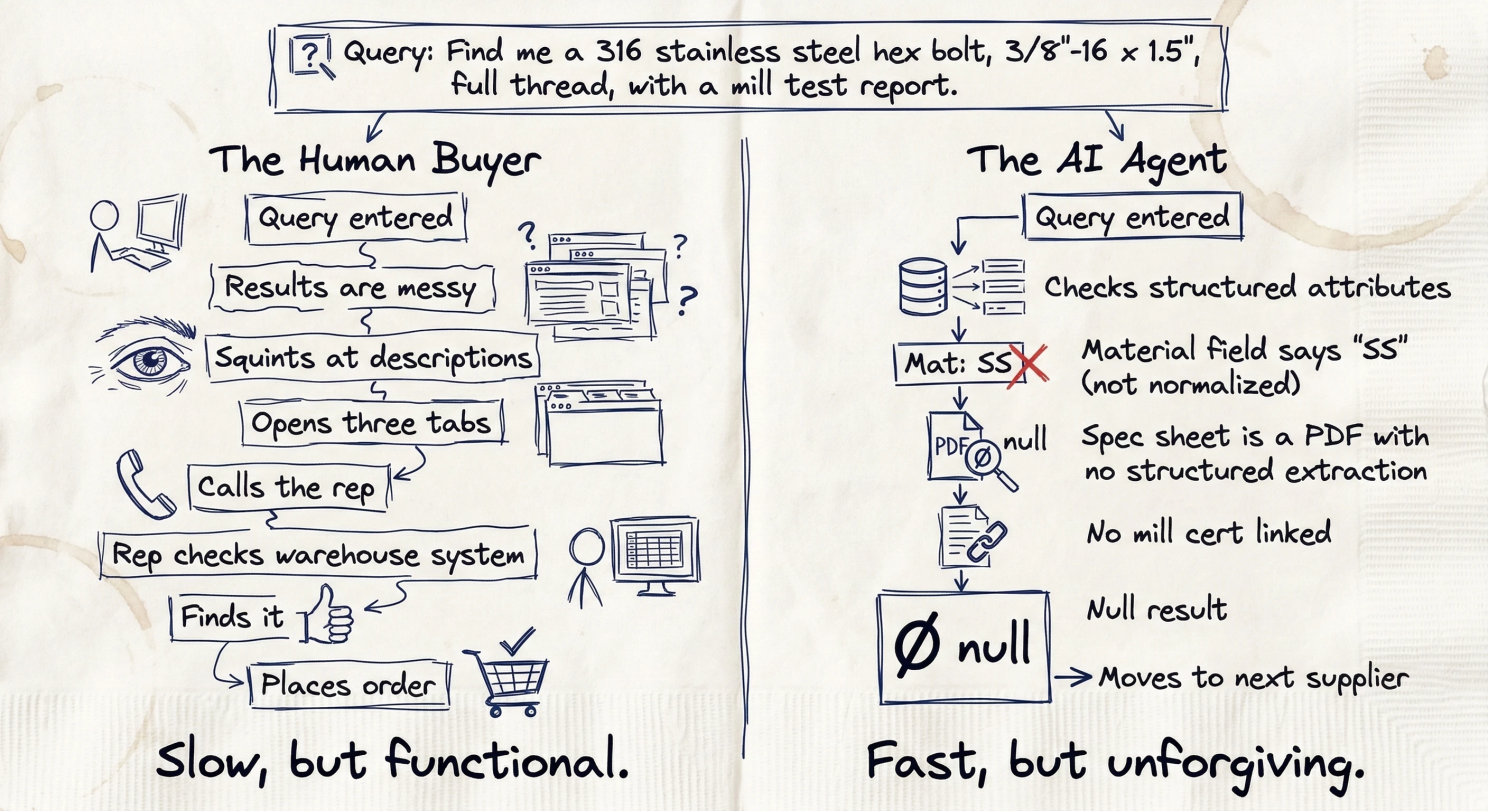 ? Query: Find me a 316 stainless steel hex bolt, 3/8"-16 x 1.5",
full thread, with a mill test report.
The Human Buyer
Query entered
Results are messy
? ? ?
Squints at descriptions
Opens three tabs
Calls the rep
Rep checks warehouse system
Finds it
Places order
Slow, but functional.
The AI Agent
Query entered
Checks structured attributes
Mat: SS
Material field says "SS"
(not normalized)
PDF Ø null
Spec sheet is a PDF with
no structured extraction
No mill cert linked
Ø null
Null result
Moves to next supplier
Fast, but unforgiving.